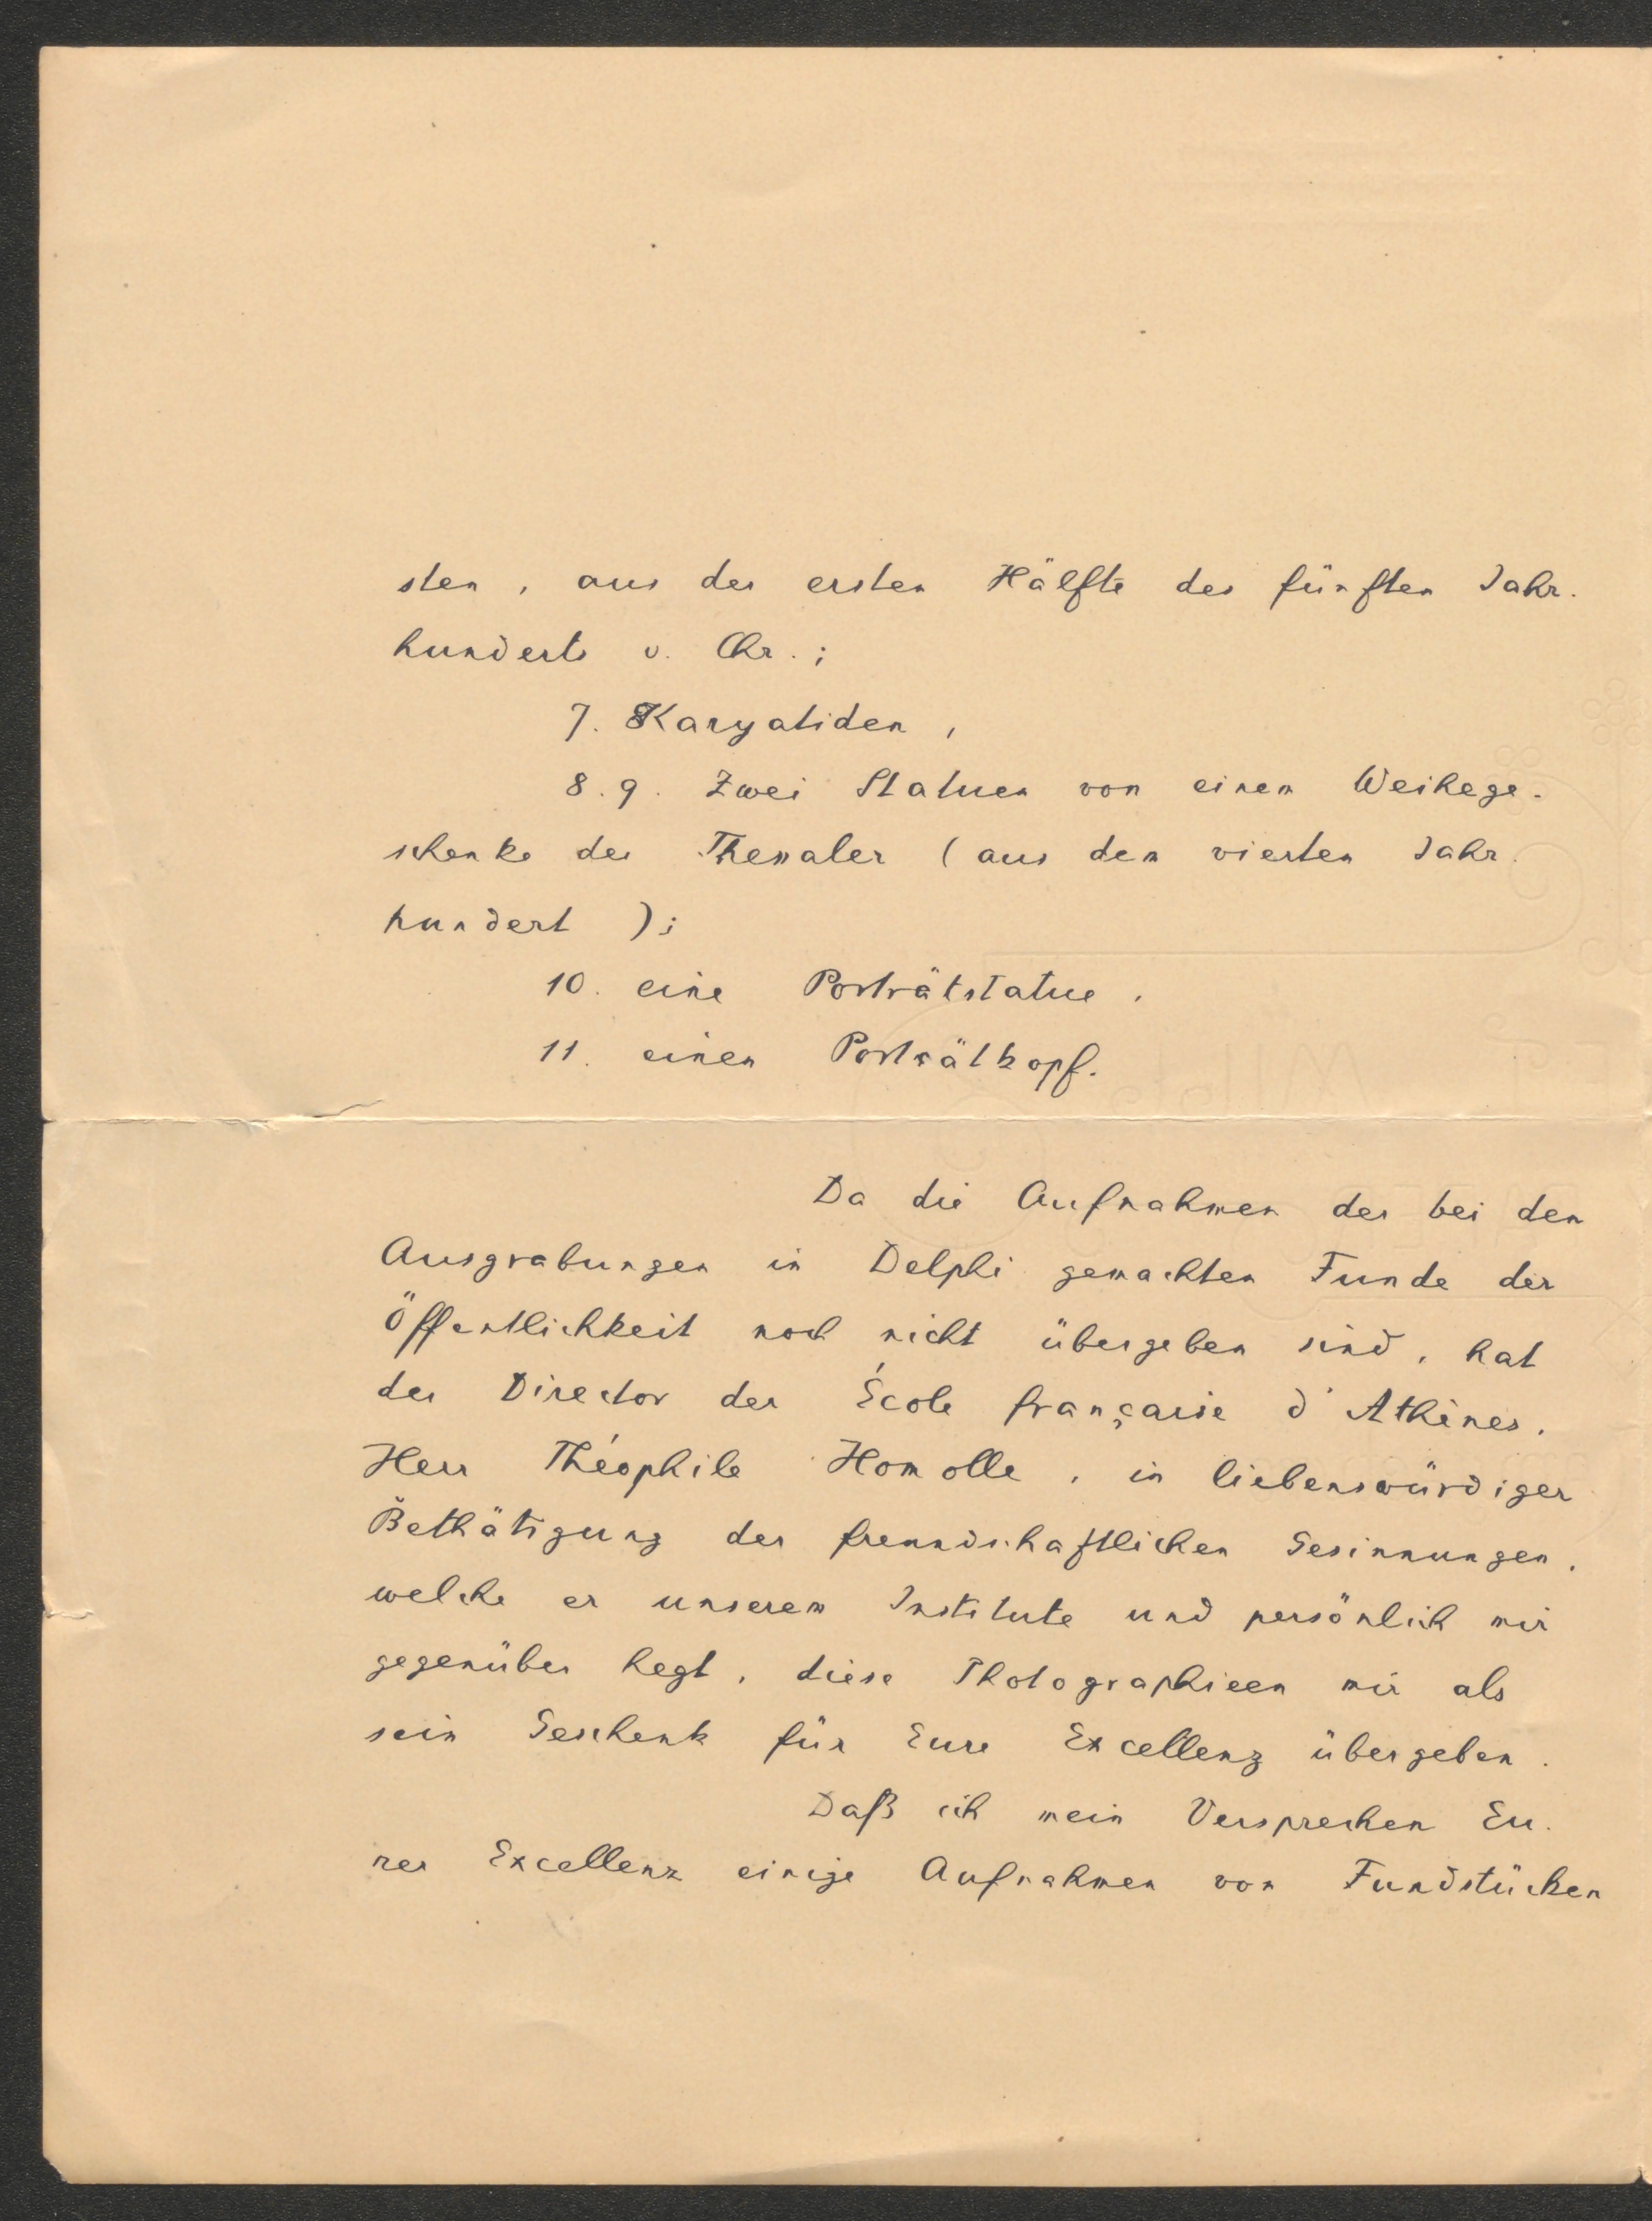 sten, aus der ersten Hälfte des fünften Jahr-
hunderts v. Chr.;
7. Karyatiden,
8. 9. Zwei Statuen von einem Weihege-
schenke der Thessaler (aus dem vierten Jahr-
hundert);
10. eine Porträtstatue,
11. einen Porträtkopf.
Da die Aufnahmen der bei den
Ausgrabungen in Delphi gemachten Funde der
Öffentlichkeit noch nicht übergeben sind, hat
der Director der École française d'Athènes,
Herr Théophile Homolle, in liebenswürdiger
Bethätigung der freundschaftlichen Gesinnungen,
welche er unserem Institute und persönlich mir
gegenüber hegt, diese Photographieen mir als
sein Geschenk für Eure Excellenz übergeben.
Daß ich mein Versprechen Eu-
rer Excellenz einige Aufnahmen von Fundstücken